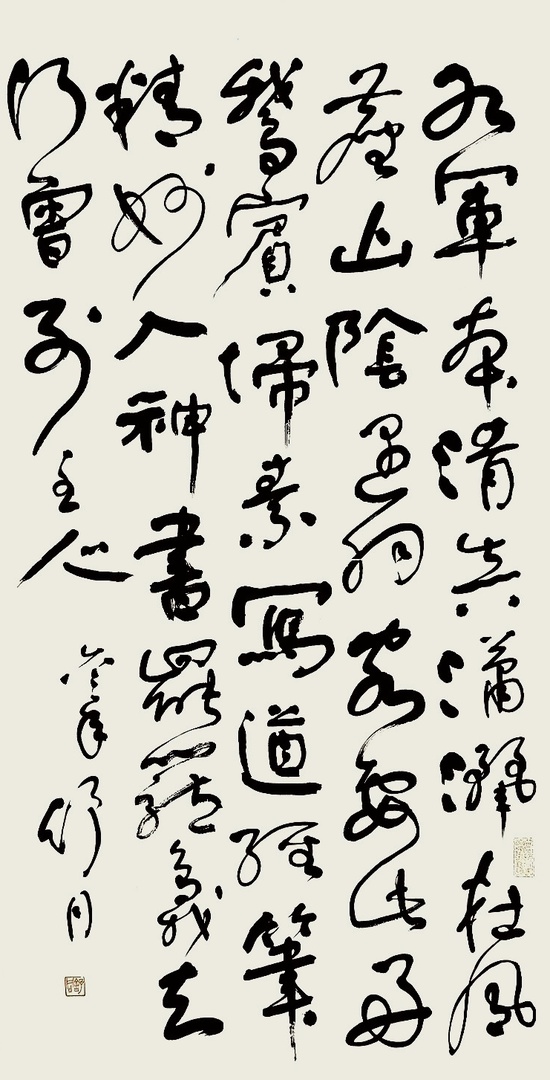 右軍本清真瀟灑在風
塵山陰遇羽客要此好
鵝賓掃素寫道經筆
精妙入神書罷籠鵝去
何曾別主人
舒月